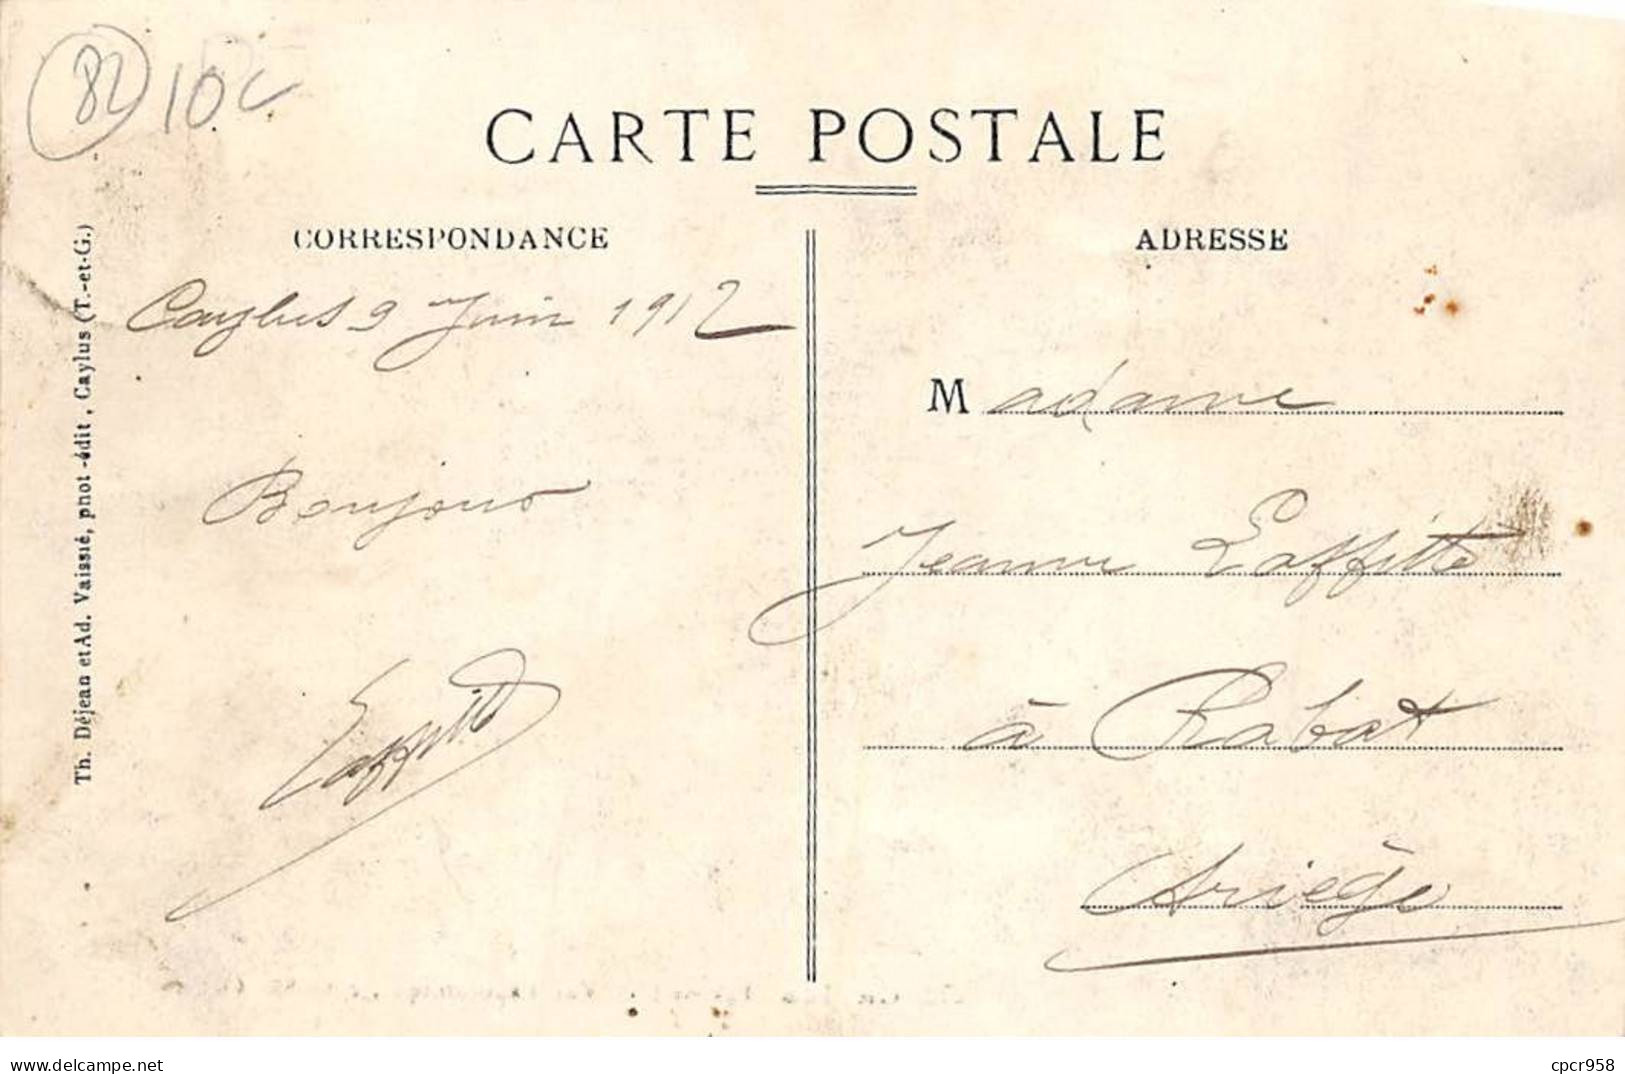 82 10c
CARTE POSTALE
CORRESPONDANCE
ADRESSE
Th. Déjean et Ad. Vaissié, phot-édit, Caylus (T.-et-G.)
Caylus 9 Juin 1912
Bonjour
Laffitte
Madame
Jeanne Laffitte
à Rabat
Ariège
www.delcampe.net
cpcr958